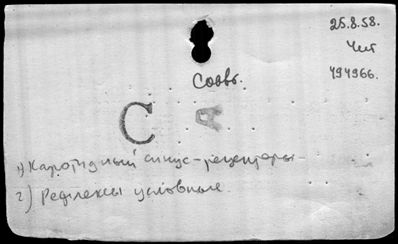 25.8.58.
Чит
494966.
Соввь.
С А
1) Каротидный синус-рецепторы-
2) Рефлексы условные.